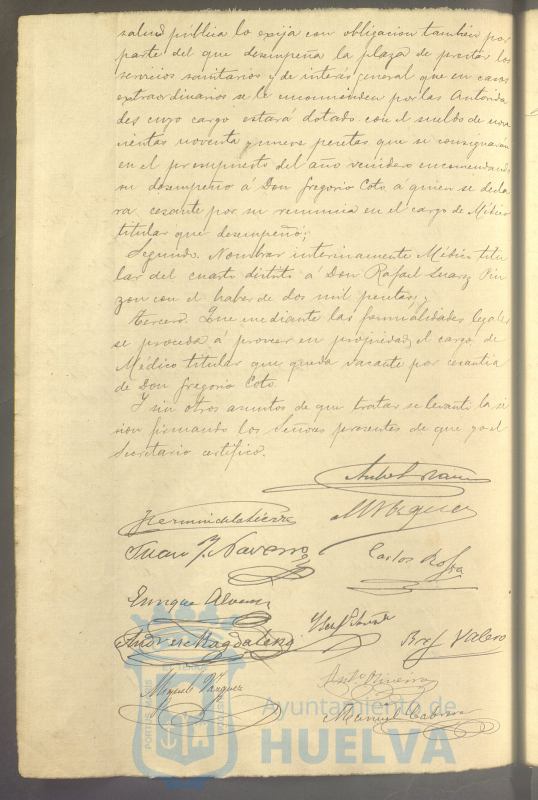 salud pública lo exija con obligacion tambien por
parte del que desempeña la plaza de prestar los
servicios sanitarios y de interés general que en casos
extraordinarios se le encomienden por las Autorida
des cuyo cargo estará dotado con el sueldo de nove
cientas noventa y nueve pesetas que se consignarán
en el presupuesto del año venidero encomendando
su desempeño á Don Gregorio Coto a quien se decla
ra cesante por su renuncia en el cargo de Médico
titular que desempeñó;
Segundo. Nombrar interinamente Médico titu
lar del cuarto distrito á Don Rafael Suarez Pin
zon con el haber de dos mil pesetas; y
Tercero. Que mediante las formalidades legales
se proceda á proveer en propiedad el cargo de
Médico titular que queda vacante por cesantia
de Don Gregorio Coto.
Y sin otros asuntos de que tratar se levantó la se
sion firmando los Señores presentes de que yo el
Secretario certifico.
Juan J. Navarro
Carlos
Enrique Alvarez
Andres Magdalena
Valero
Miguel Vazquez
Antº
Manuel Cabrera
Ayuntamiento de
HUELVA